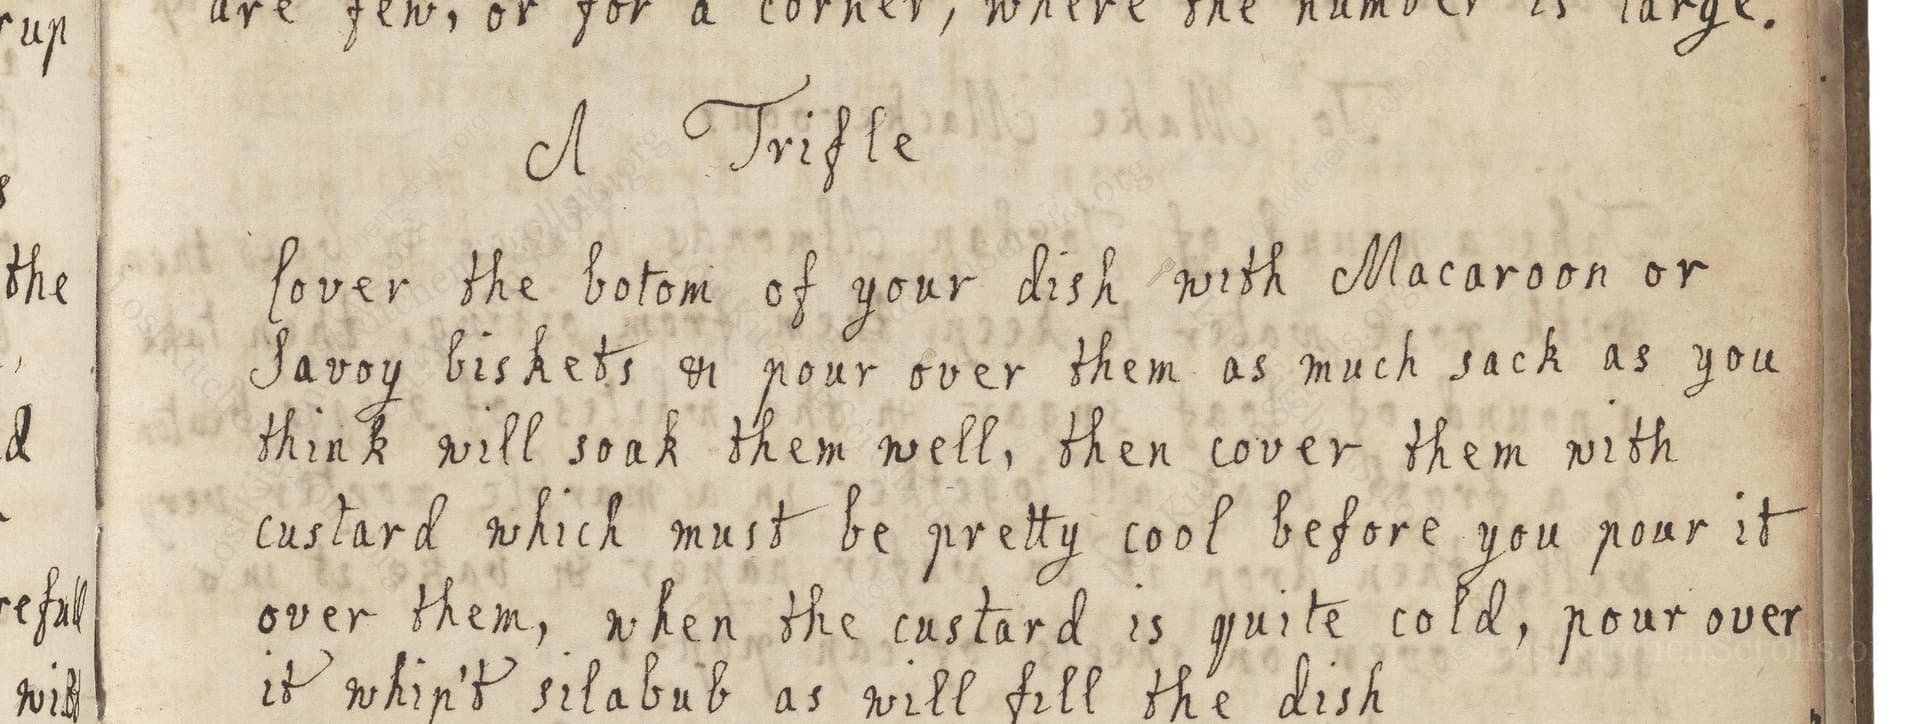 are few, or for a corner, where the number is large.
A Trifle
Cover the botom of your dish with Macaroon or
Savoy biskets & pour over them as much sack as you
think will soak them well, then cover them with
custard which must be pretty cool before you pour it
over them, when the custard is quite cold, pour over
it whip't silabub as will fill the dish
rup
the
d
refull
will